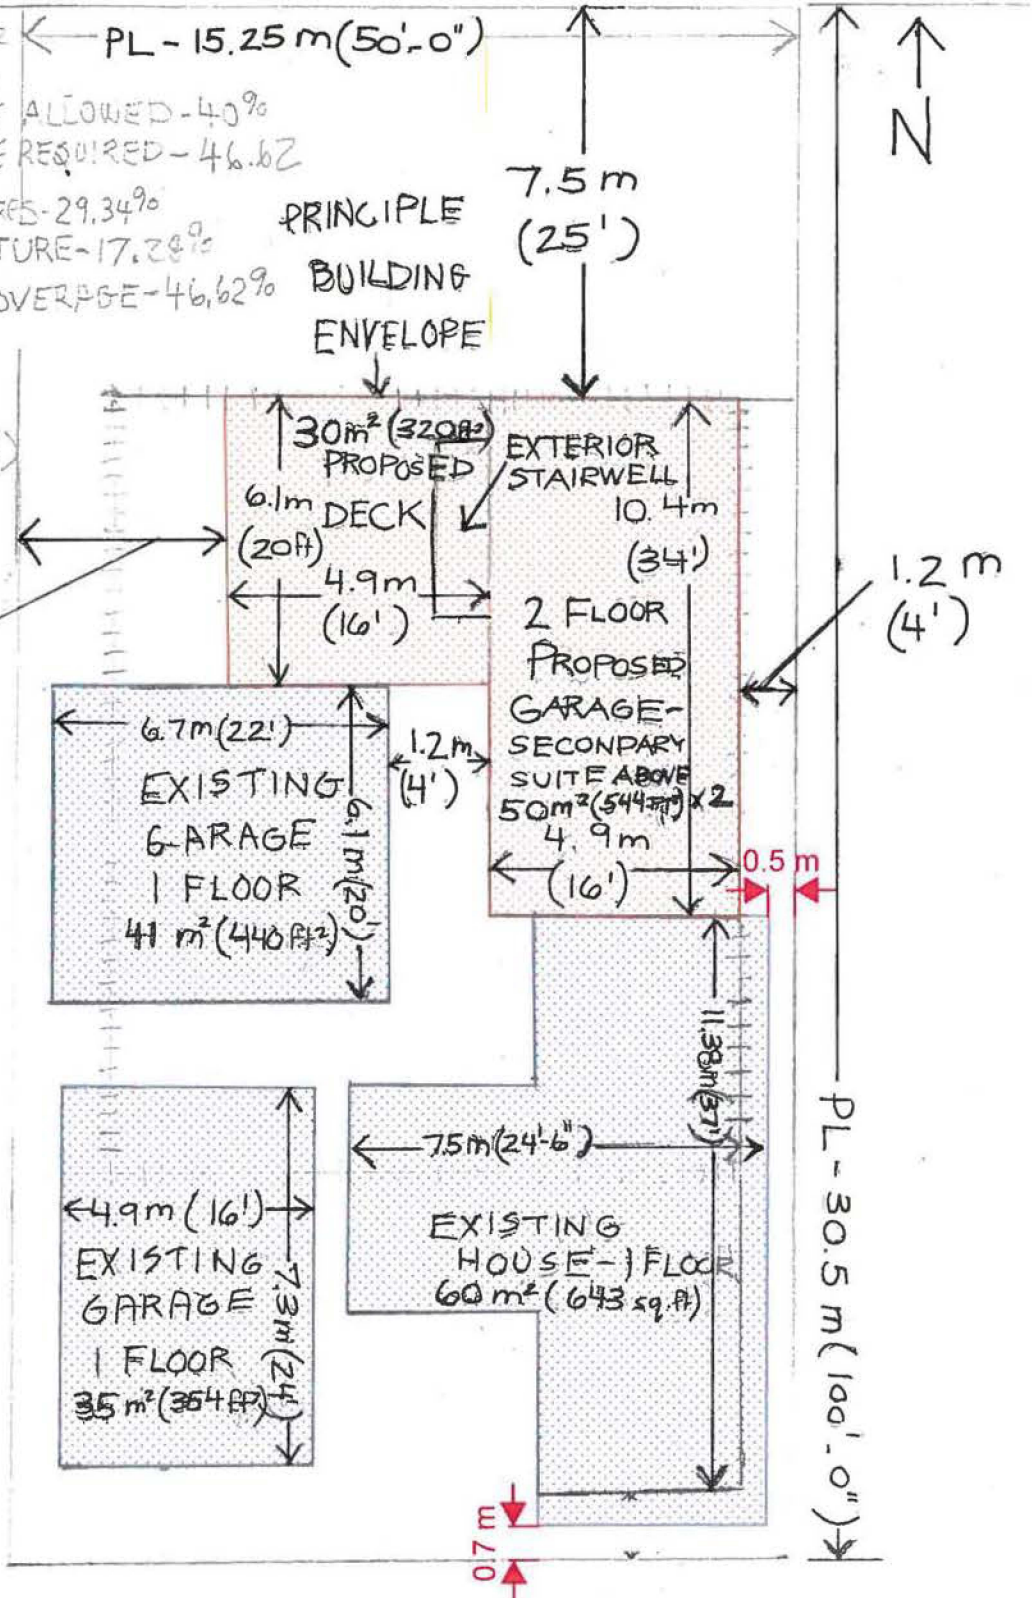 PL - 15.25 m (50'-0")
N
ALLOWED - 40%
REQUIRED - 46.62
29.34%
TURE - 17.28%
OVERAGE - 46.62%
7.5 m
(25')
PRINCIPLE
BUILDING
ENVELOPE
30m² (320ft²)
PROPOSED
DECK
6.1m
(20ft)
4.9m
(16')
EXTERIOR
STAIRWELL
10.4m
(34')
2 FLOOR
PROPOSED
GARAGE-
SECONDARY
SUITE ABOVE
50m² (544ft²) x 2
4.9m
(16')
1.2 m
(4')
6.7m (22')
EXISTING
GARAGE
1 FLOOR
41 m² (440ft²)
6.1m (20')
1.2m
(4')
0.5 m
11.38m (37')
7.5m (24'-6")
EXISTING
HOUSE - 1 FLOOR
60 m² (643 sq.ft)
4.9m (16')
EXISTING
GARAGE
1 FLOOR
35 m² (354 ft²)
7.3m (24')
PL - 30.5 m (100'-0")
0.7 m